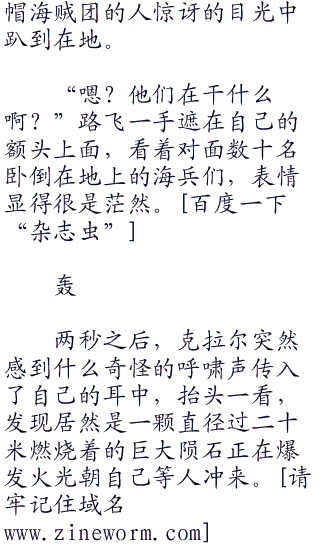 帽海贼团的人惊讶的目光中
趴到在地。
“嗯？他们在干什么
啊？”路飞一手遮在自己的
额头上面，看着对面数十名
卧倒在地上的海兵们，表情
显得很是茫然。[百度一下
“杂志虫”]
轰
两秒之后，克拉尔突然
感到什么奇怪的呼啸声传入
了自己的耳中，抬头一看，
发现居然是一颗直径过二十
米燃烧着的巨大陨石正在爆
发火光朝自己等人冲来。[请
牢记住域名
www.zineworm.com]